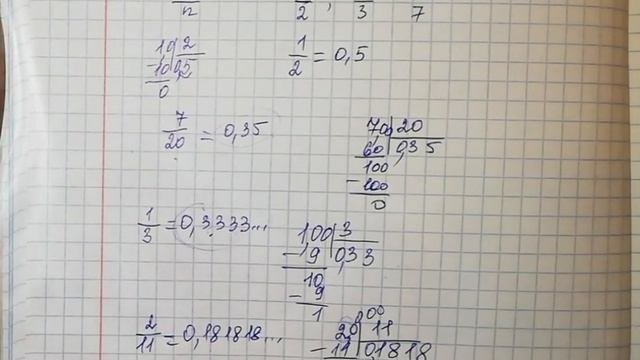 n 2 , 3 7
1,0 2
- 10 0,5
0
1/2 = 0,5
7/20 = 0,35
7,00 20
60 0,35
100
- 100
0
1/3 = 0,3333...
1,00 3
- 9 0,33
10
- 9
1
2/11 = 0,181818...
2,000 11
- 11 0,1818